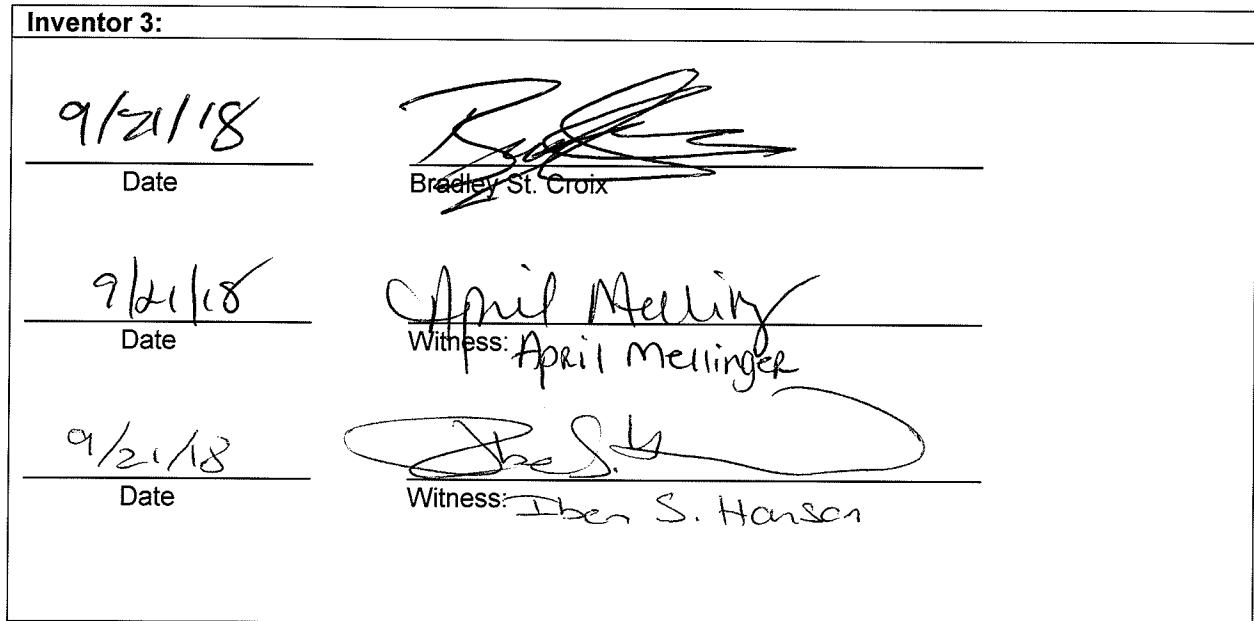 Inventor 3:
9/21/18
Date
Bradley St. Croix
9/21/18
April Mellinger
Date
Witness: April Mellinger
9/21/18
Iben S. H
Date
Witness: Iben S. Hansen